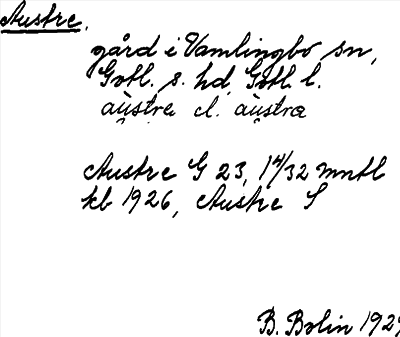 Austre.
gård i Vamlingbo sn,
Gotl. s. hd, Gotl. l.
au̯stre el. au̯stra
Austre G 23, 14/32 mntl
kb 1926, Austre S
B. Bolin 1927